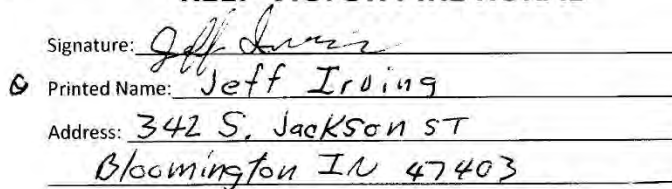 Signature: Jeff Irving
Printed Name: Jeff Irving
Address: 342 S. Jackson ST
Bloomington IN 47403